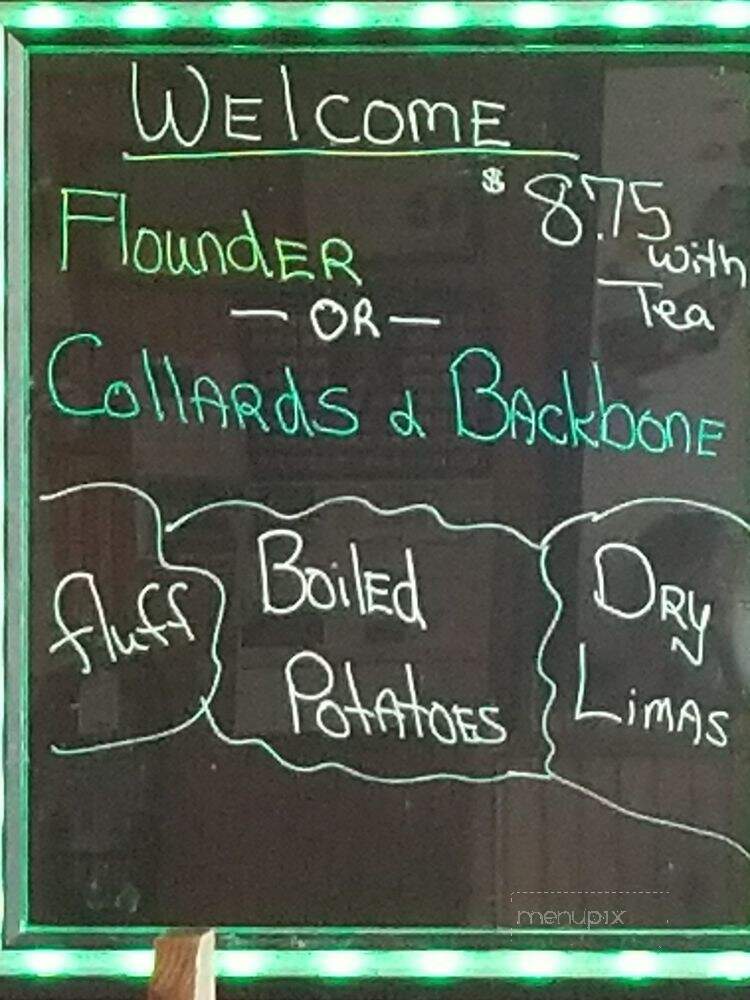 WElcomE
$ 8.75
FlounDER
with
Tea
— OR —
CollARdS & BAckbonE
fluff
BoilEd
PotAtoES
DRy
LimAS
menupix